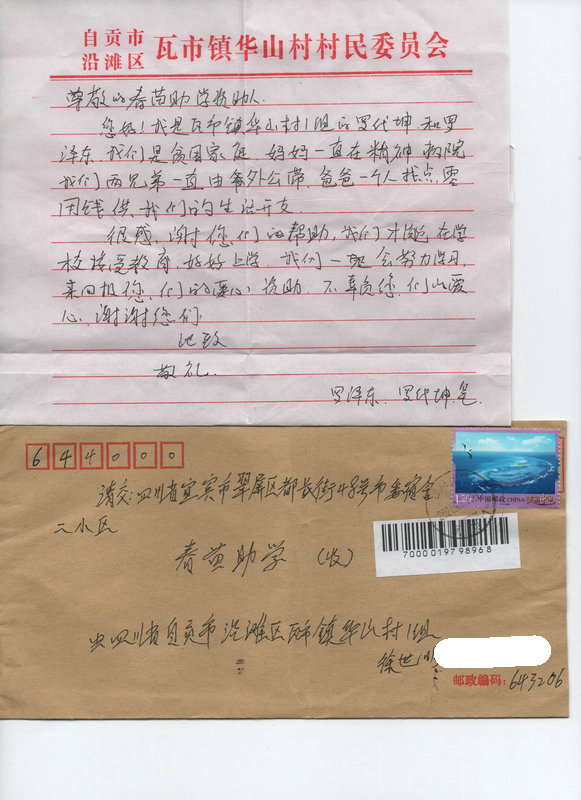 自贡市
沿滩区 瓦市镇华山村村民委员会
尊敬的春苗助学资助人.
您好!我是瓦市镇华山村1组的罗代坤和罗
泽东,我们是贫困家庭,妈妈一直在精神病院
我们两兄弟一直由爷外公带,爸爸一个人找点零
用钱供我们的生活开支.
很感谢您们的帮助,我们才能在学
校接受教育,好好上学 我们一定会努力学习,
来回报您们的爱心资助.不辜负您们的爱
心,谢谢您们
此致
敬礼.
罗泽东.罗代坤.
644000
中国邮政CHINA
请交:四川省宜宾市翠屏区都长街48号市委宿舍
二小区
7000019798968
春苗助学 (收)
四川省自贡市沿滩区瓦市镇华山村1组
徐世
邮政编码:643206